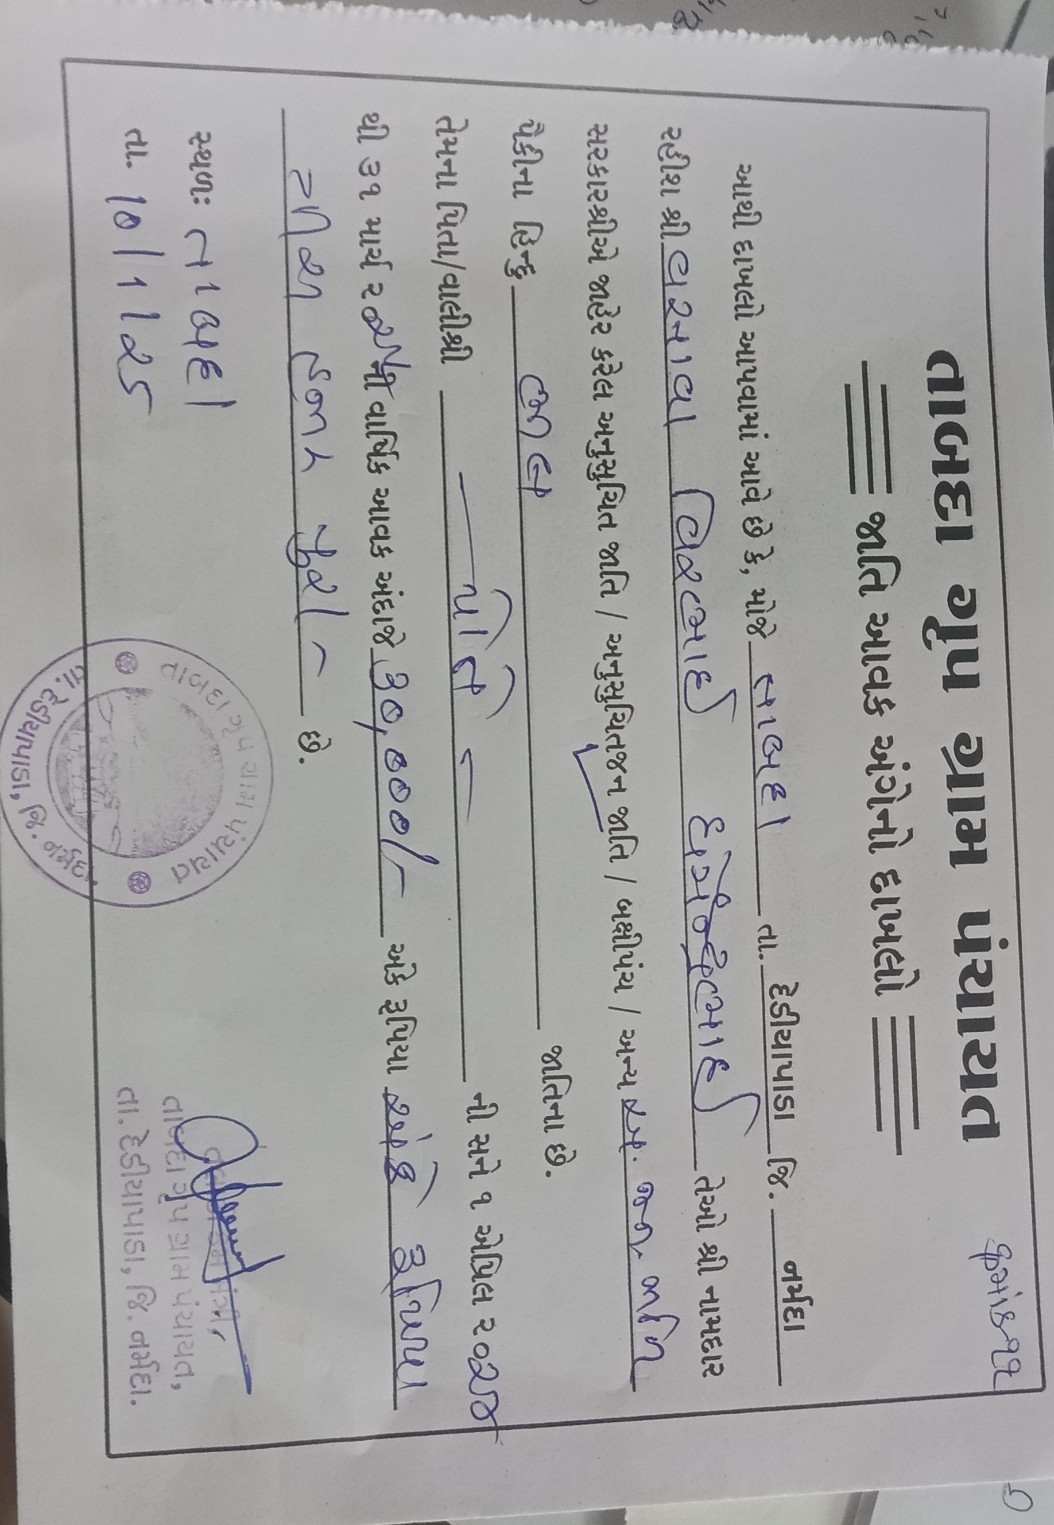 તાબદા ગ્રુપ ગ્રામ પંચાયત
જાતિ આવક અંગેનો દાખલો
આથી દાખલો આપવામાં આવે છે કે, મોજે તાબદા તા. દેડીયાપાડા જિ. નર્મદા
રહીશ શ્રી વસાવા વિરલભાઈ ધર્મેન્દ્રભાઈ તેઓ શ્રી નામદાર
સરકારશ્રીએ જાહેર કરેલ અનુસુચિત જાતિ / અનુસુચિતજન જાતિ / બક્ષીપંચ / અન્ય અનુ. જન. જાતિ
પૈકીના હિન્દુ ભીલ જાતિના છે.
તેમના પિતા/વાલીશ્રી — પોતે — ની સને ૧ એપ્રિલ ૨૦૨૪
થી ૩૧ માર્ચ ૨૦૨૫ની વાર્ષિક આવક અંદાજે ૩૦,૦૦૦/- અંકે રૂપિયા અંકે રૂપિયા
ત્રીસ હજાર પુરા - છે.
સ્થળઃ તાબદા
તા. ૧૦/૧/૨૫
તાબદા ગ્રુપ ગ્રામ પંચાયત,
તા. દેડીયાપાડા, જિ. નર્મદા.
ગ્રુપ ગ્રામ પંચાયત
તા. દેડીયાપાડા, જિ. નર્મદા